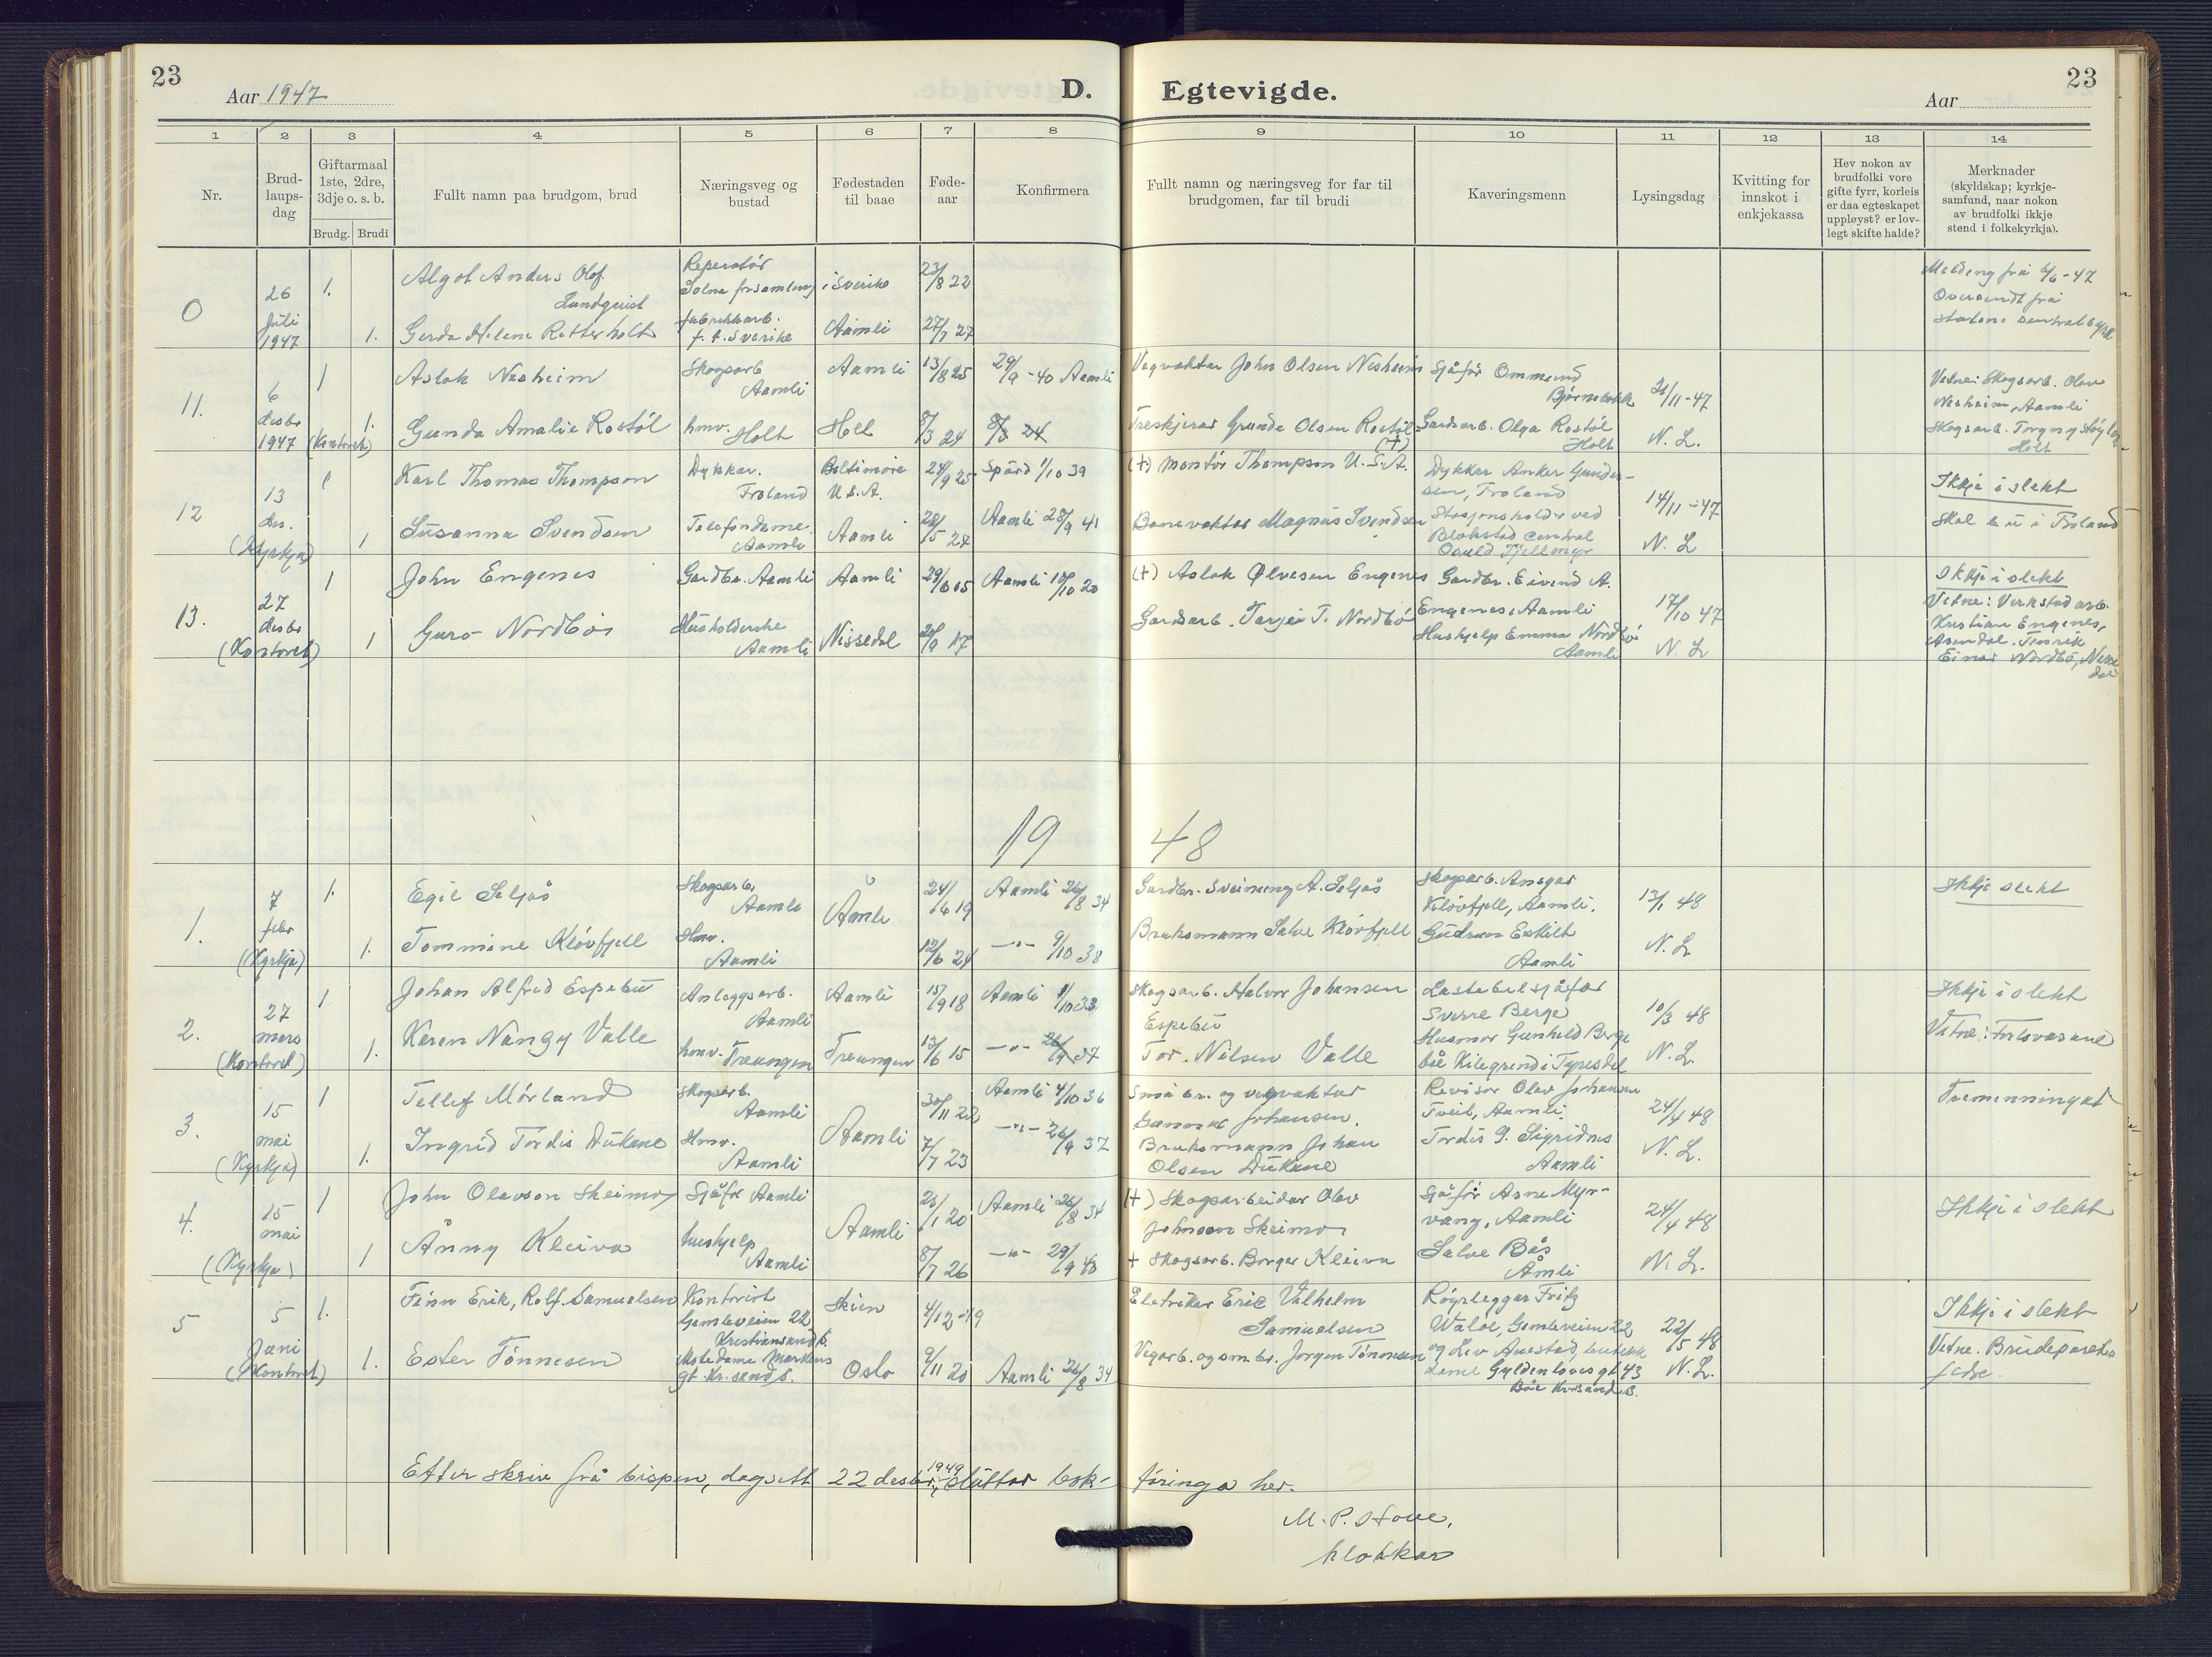 23
Aar 1947
D.
Egtevigde.
Aar
23
1 2 3 4 5 6 7 8 9 10 11 12 13 14
Nr.
Brud-
laups-
dag
Giftarmaal
1ste, 2dre,
3dje o. s. b.
Brudg. Brudi
Fullt namn paa brudgom, brud
Næringsveg og
bustad
Fødestaden
til baae
Føde-
aar
Konfirmera
Fullt namn og næringsveg for far til
brudgomen, far til brudi
Kaveringsmenn
Lysingsdag
Kvitting for
innskot i
enkjekassa
Hev nokon av
brudfolki vore
gifte fyrr, korleis
er daa egteskapet
uppløyst? er lov-
legt skifte halde?
Merknader
(skyldskap; kyrkje-
samfund, naar nokon
av brudfolki ikkje
stend i folkekyrkja).
0
26
Juli
1947
1.
Algot Anders Olof
Lundquist
Reperatør
Solna forsamling
i Sverike
23/8 22
1.
Gerda Helene Retterholt
fabrikkarb.
f. t. Sverike
Aamli
27/7 27
Melding frå 6/6-47
Oversendt frå
statens
11.
6
desbr
1947 (Kontoret)
1
Aslak Nesheim
Skogsarb
Aamli
Aamli
13/8 25
29/9-40 Aamli
Vegvaktar John Olsen Nesheim
Sjåfør Ommund
21/11-47
1.
Gunda Amalie Rostøl
hmv.
Holt
Holt
8/3 24
8/3 24
Treskjerar Grunde Olsen Rostøl
(+)
Gardsarb. Olga Rostøl
Holt
N. L.
Vitne: Skogsarb. Olav
Nesheim, Aamli
Skogsarb. Torgny
Holt
12
13
des.
(Kyrkja)
1
Karl Thomas Thompson
Dykkar.
Froland
Baltimore
U. S. A.
24/9 25
Spård 1/10 39
(+) Montør Thompson U. S. A.
Dykkar Anker Gunder-
sen, Froland
14/11-47
1
Susanna Svendsen
Telefondame
Aamli
Aamli
28/5 27
Aamli 28/9 41
Banevaktar Magnus Svendsen
Stasjonsholder ved
Blakstad central
N. L
Ikkje i slekt
Skal bu i Froland
13.
27
desbr
(Kontoret)
1
John Engenes
Gardbr. Aamli
Aamli
29/6 05
Aamli 10/10 20
(+) Aslak Ølvesen Engenes
Gardbr. Eivind A.
Engenes, Aamli
17/10 47
1
Guro Nordbø
Husholderske
Aamli
Nissedal
20/9 17
Gardsarb. Tarjei T. Nordbø
Hushjelp Emma Nordbø
Aamli
N. L
Ikkje i slekt
Vitne: Verkstadarb.
Kristian Engenes,
Arendal.
Einar Nordbø, Nisse-
dal
19 48
1.
7
febr
(Kyrkja)
1.
Egil Seljås
Skogsarb.
Aamli
Åmli
24/6 19
Aamli 26/8 34
Gardbr. Sveinung A. Seljås
Skogsarb. Ansgar
Kløvfjell, Aamli.
13/1 48
1.
Tommine Kløvfjell
Hmv.
Aamli
12/6 24
—"— 9/10 38
Bruksmann Salve Kløvfjell
Gudrun Eskilt
Aamli
N. L
Ikkje slekt
2.
27
mars
(Kontoret)
1
Johan Alfred Espebu
Anleggsarb.
Aamli
Aamli
15/9 18
Aamli 1/10 33
Skogsarb. Halvor Johansen
Espebu
Lastebilsjåfør
Sverre Berge
10/3 48
1.
Karen Nangy Valle
hmv. Treungen
Treungen
13/6 15
—"— 26/9 37
Tor. Nilsen Valle
Husmor Gunhild Berge
båe Kilegrend i Tyresdal
N. L.
Ikkje i slekt
Vitne: Forlovarane
3.
15
mai
(Kyrkja)
1
Tellef Mørland
Skogsarb.
Aamli
Aamli
30/11 22
Aamli 4/10 36
Småbr. og vegvaktar
Gunnar Johansen.
Revisor Olav Johansen
Tveit, Aamli.
24/4 48
1.
Ingrid Tordis Dukane
Hmv.
Aamli
7/7 23
—"— 26/9 37
Bruksmann Johan
Olsen Dukane
Tordis G. Sigridnes
Aamli
N. L.
Tremenningar
4.
15
mai
(Kyrkja)
1
John Olavson Skeimo
Sjåfør Aamli
Aamli
23/1 20
Aamli 26/8 34
(+) Skogsarbeidar Olav
Johnson Skeimo
Sjåfør Arne Myr-
vang, Aamli
24/4 48
1
Ånny Kleiva
hushjelp
Aamli
8/7 26
—"— 29/9 40
+ Skogsarb. Borger Kleiva
Salve Bås
Åmli
N. L.
Ikkje i slekt
5
5
Juni
(Kontoret)
1.
Finn Erik, Rolf. Samuelsen
Kontorist
Gamleveien 22
Kristiansand S.
Skien
4/12-19
Elektriker Eric Vilhelm
Samuelsen
Røyrleggar Fritz
Waloe, Gamleveien 22
22/5 48
1.
Ester Tønnesen
Motedame Markens
gt. Kr.sand S.
Oslo
9/11 20
Aamli 26/8 34
Vegarb. og sm.br. Jørgen Tønnesen
og Liv Auestad, butikk
dame Gyldenløves gt 43
Båe Kr.sand S.
N. L.
Ikkje i slekt
Vitne. Brudeparets
fedre.
Etter skriv frå bispen, dagsett 22 desbr. 1949, sluttar bok-
føringa her.
M. P. Stove,
klokkar